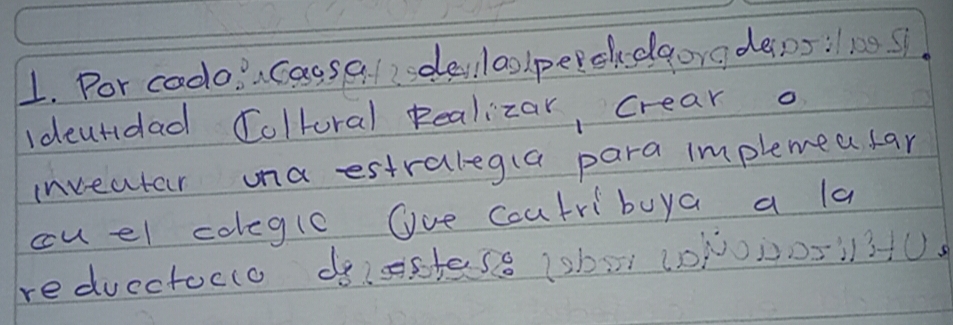 1. Por cada causa de la perdida de
identidad Coltural Realizar, Crear o
inventar una estrategia para implementar
en el colegio Que contribuya a la
de estas